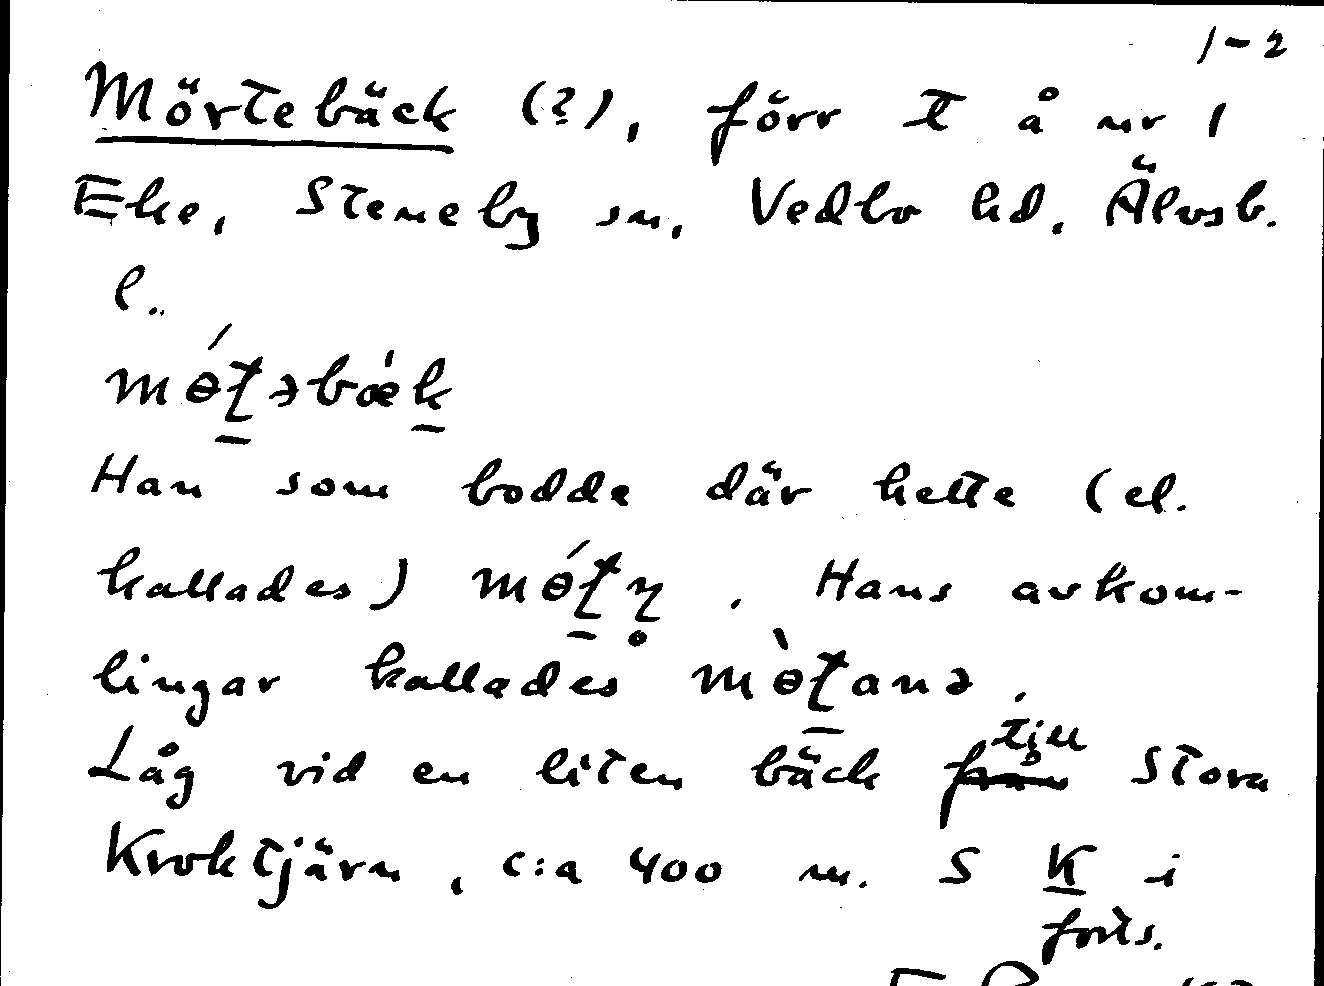 1-2
Mörtebäck (?), förr t å nr 1
Eke, Steneby sn, Vedbo hd, Älvsb.
l.
Han som bodde där hette (el.
kallades) . Hans avkom-
lingar kallades .
Låg vid en liten bäck till Stora
Kroktjärn, c:a 400 m. S K i
forts.